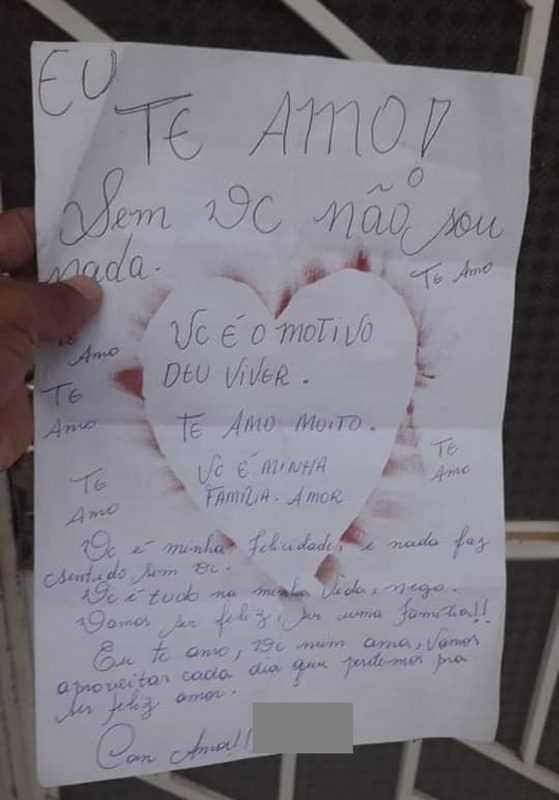 EU
TE AMO!
Sem vc não sou
nada.
TE AMO
TE
Amo
VC É O MOTIVO
DEU VIVER.
TE
Amo
TE AMO MUITO.
TE
Amo
VC É MINHA
FAMÍLIA. AMOR
TE
Amo
Vc é minha felicidade, e nada faz
sentido sem vc.
Vc é tudo na minha vida, nego.
Vamos ser feliz, ser uma família!!
Eu te amo, vc mim ama, Vamos
aproveitar cada dia que perdemos pra
ser feliz amor.
Com Amor!!